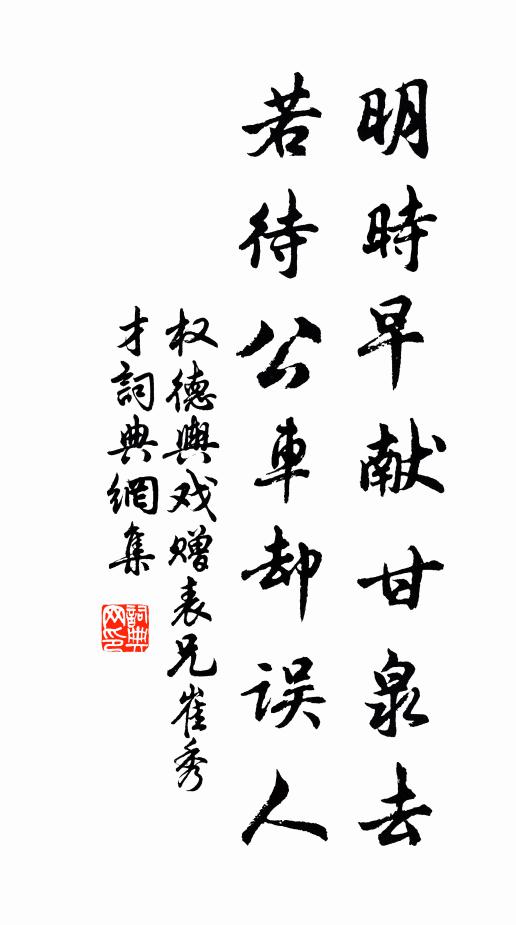 明時早献甘泉去
若待公車却误人
权德輿戏赠表兄崔秀
才詞典網集
詞典網印